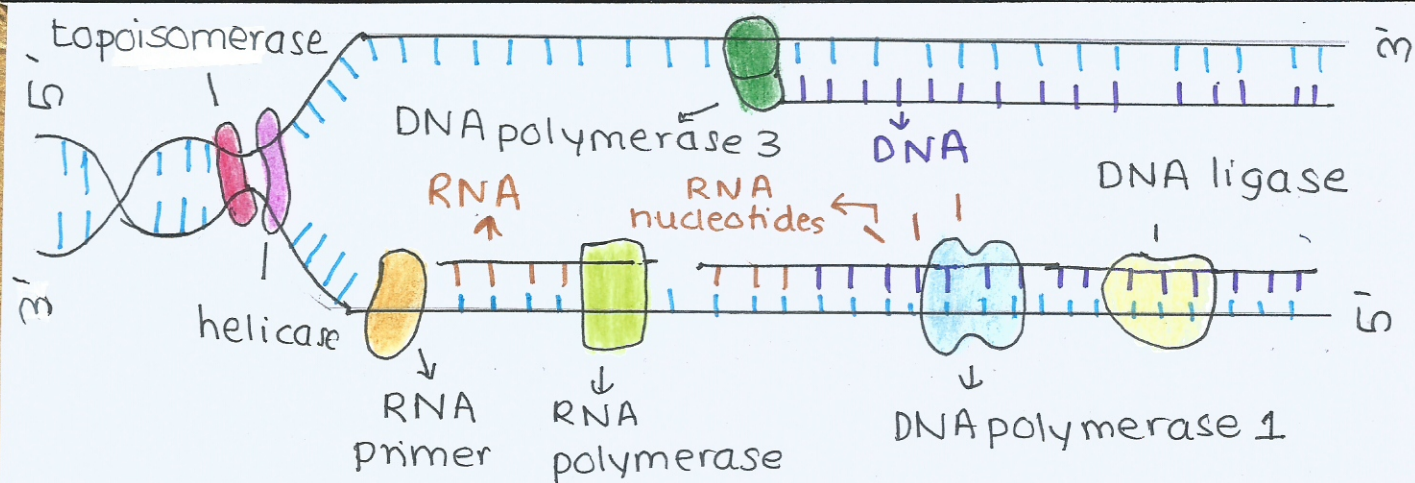 topoisomerase
5'
3'
DNA polymerase 3
DNA
RNA
RNA
nucleotides
DNA ligase
3'
helicase
5'
RNA
primer
RNA
polymerase
DNA polymerase 1